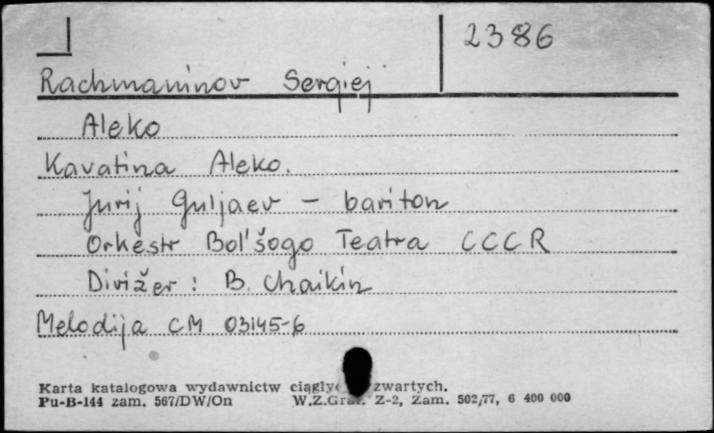 2386
Rachmaninov Sergiej
Aleko
Kavatina Aleko.
Jurij Guljaev - bariton
Orkestr Bol'šogo Teatra CCCR
Divižer: B. Chaikin
Melodija CM 03145-6
Karta katalogowa wydawnictw zwartych.
Pu-B-144 zam. 567/DW/On W.Z.Graf. Z-2, Zam. 502/77, 6 400 000